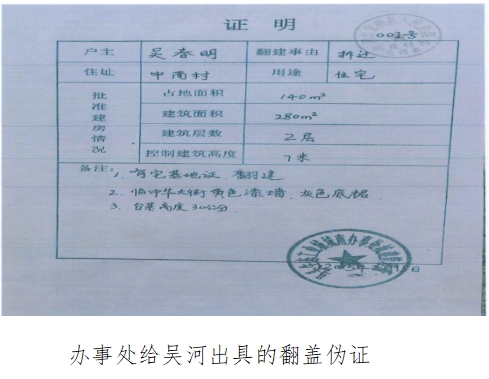 证明
001号
户主 吴春明 翻建事由 拆迁
住址 中南村 用途 住宅
批准建房情况
占地面积 140m²
建筑面积 280m²
建筑层数 2层
控制建筑高度 7米
备注: 1、有宅基地证、翻建
2、临中华大街黄色漆墙、灰色底裙
3、台基高度30公分
办事处给吴河出具的翻盖伪证